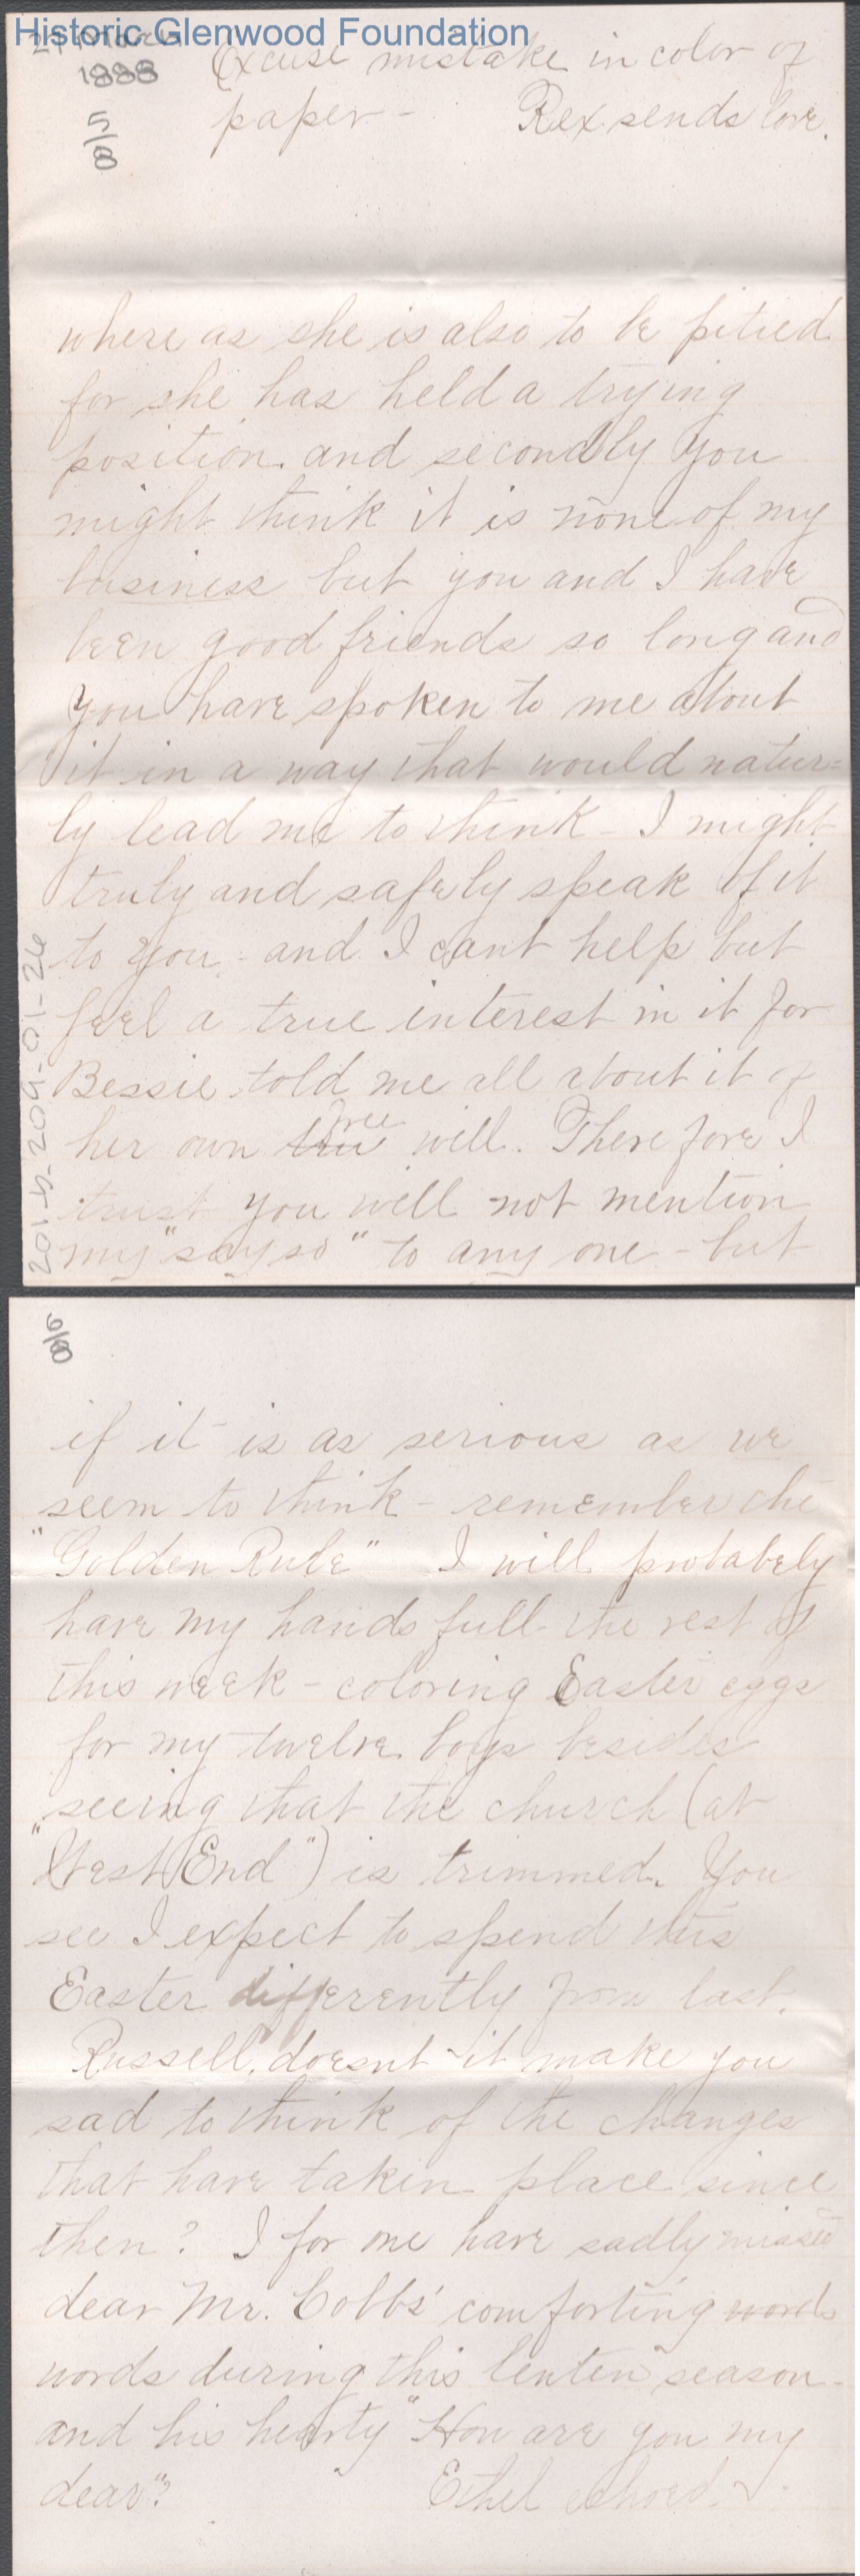 Historic Glenwood Foundation
27 March
1888
5/8
Excuse mistake in color of
paper - Rex sends love.
where as she is also to be pitied
for she has held a trying
position. and secondly you
might think it is none of my
business but you and I have
been good friends so long and
you have spoken to me about
it in a way that would natur=
ly lead me to think - I might
truly and safely speak of it
to you - and I cant help but
feel a true interest in it for
Bessie told me all about it of
her own free will. Therefore I
trust you will not mention
my "say so" to any one - but
6/8
if it is as serious as we
seem to think - remember the
"Golden Rule" I will probabely
have my hands full the rest of
this week - coloring Easter eggs
for my twelve boys besides
seeing that the church (at
"West End") is trimmed. You
see I expect to spend this
Easter differently from last.
Russell, doesnt it make you
sad to think of the changes
that have taken place since
then? I for one have sadly missed
dear Mr. Cobbs' comforting words
words during this lenten season -
and his hearty "How are you my
dear"? Ethel